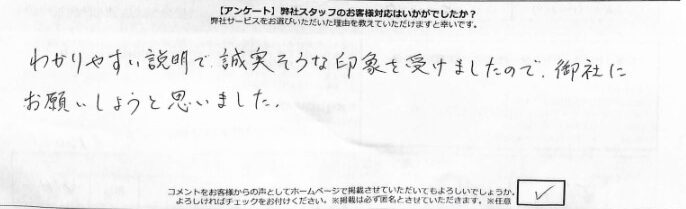 【アンケート】弊社スタッフのお客様対応はいかがでしたか？
弊社サービスをお選びいただいた理由を教えていただけますと幸いです。
わかりやすい説明で、誠実そうな印象を受けましたので、御社に
お願いしようと思いました。
コメントをお客様からの声としてホームページで掲載させていただいてもよろしいでしょうか。
よろしければチェックをお付けください。※掲載は必ず匿名とさせていただきます。※任意